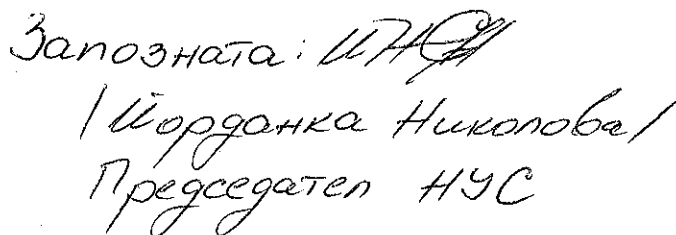 Запозната:
/Йорданка Николова/
Председател НУС